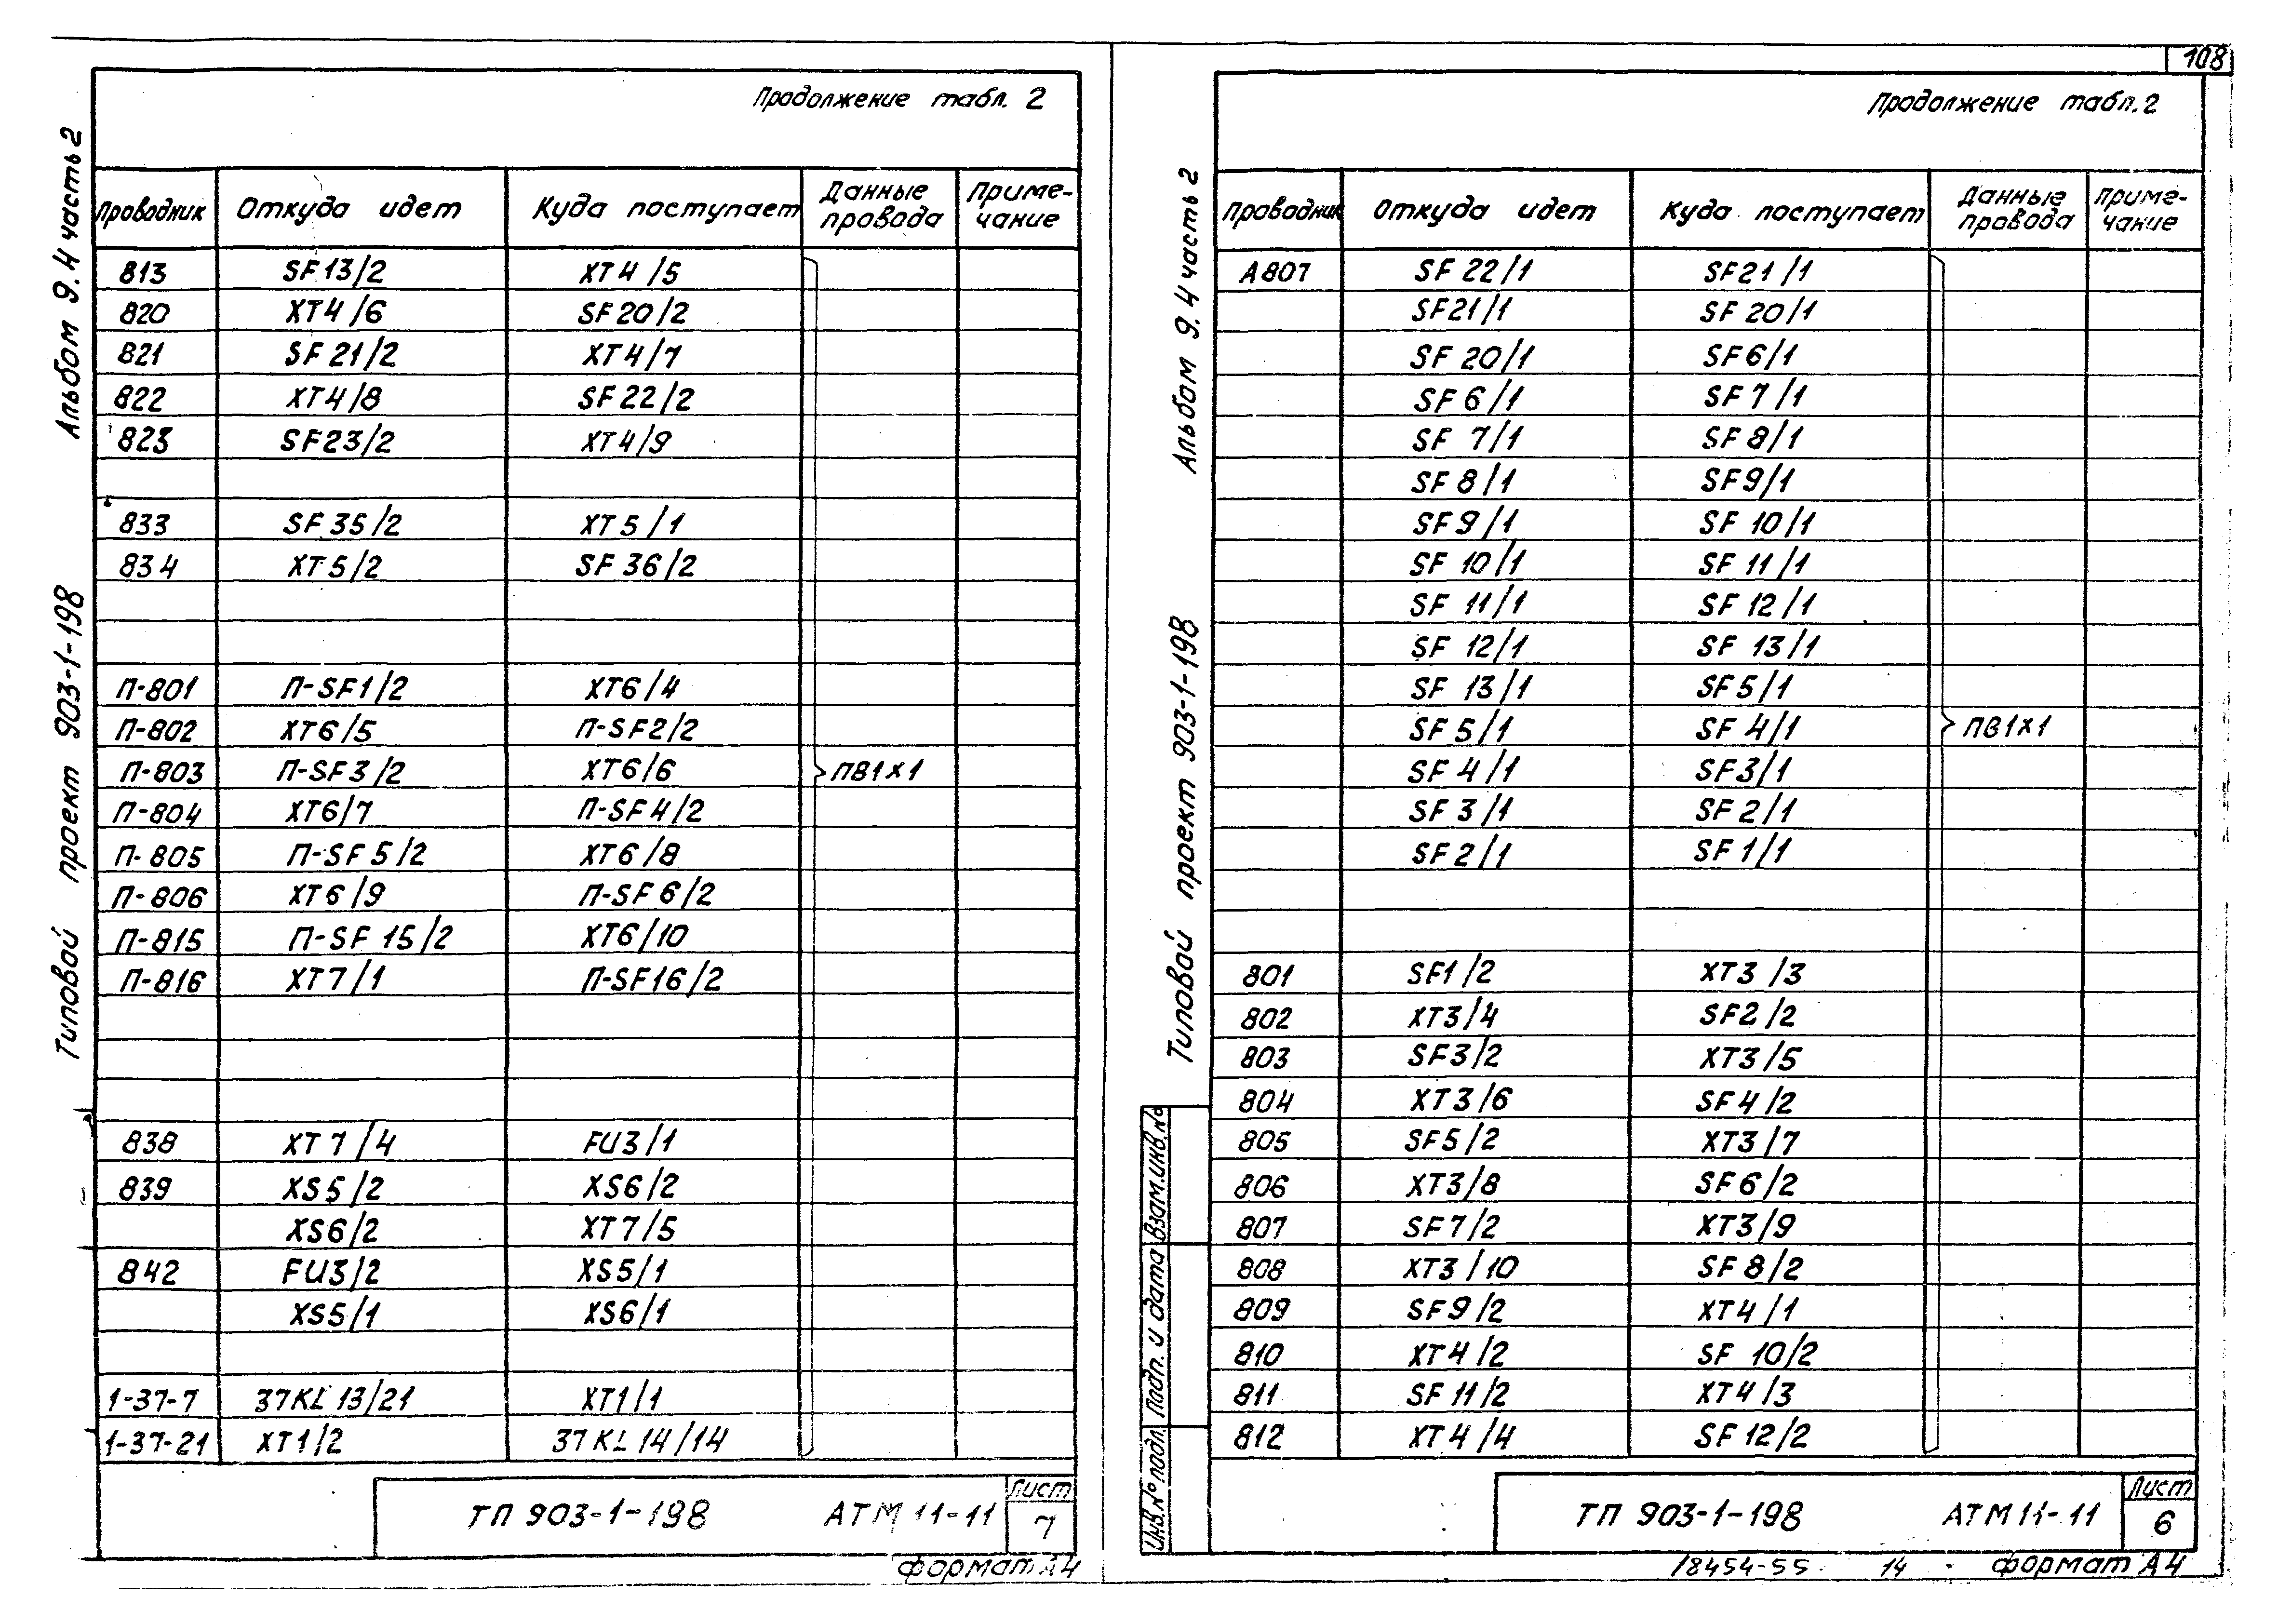 108
Продолжение табл. 2
Альбом 9.4 часть 2
Типовой проект 903-1-198
Проводник Откуда идет Куда поступает Данные провода Приме-чание
813 SF13/2 XT4/5
820 XT4/6 SF20/2
821 SF21/2 XT4/7
822 XT4/8 SF22/2
823 SF23/2 XT4/9
833 SF35/2 XT5/1
834 XT5/2 SF36/2
П-801 П-SF1/2 XT6/4
П-802 XT6/5 П-SF2/2
П-803 П-SF3/2 XT6/6 ПВ1х1
П-804 XT6/7 П-SF4/2
П-805 П-SF5/2 XT6/8
П-806 XT6/9 П-SF6/2
П-815 П-SF15/2 XT6/10
П-816 XT7/1 П-SF16/2
838 XT7/4 FU3/1
839 XS5/2 XS6/2
XS6/2 XT7/5
842 FU3/2 XS5/1
XS5/1 XS6/1
1-37-7 37KL13/21 XT1/1
1-37-21 XT1/2 37KL14/14
ТП 903-1-198 АТМ 11-11 Лист 7
формат А4
Продолжение табл. 2
Альбом 9.4 часть 2
Типовой проект 903-1-198
Проводник Откуда идет Куда поступает Данные провода Приме-чание
А807 SF22/1 SF21/1
SF21/1 SF20/1
SF20/1 SF6/1
SF6/1 SF7/1
SF7/1 SF8/1
SF8/1 SF9/1
SF9/1 SF10/1
SF10/1 SF11/1
SF11/1 SF12/1
SF12/1 SF13/1
SF13/1 SF5/1
SF5/1 SF4/1 ПВ1х1
SF4/1 SF3/1
SF3/1 SF2/1
SF2/1 SF1/1
801 SF1/2 XT3/3
802 XT3/4 SF2/2
803 SF3/2 XT3/5
804 XT3/6 SF4/2
805 SF5/2 XT3/7
806 XT3/8 SF6/2
807 SF7/2 XT3/9
808 XT3/10 SF8/2
809 SF9/2 XT4/1
810 XT4/2 SF10/2
811 SF11/2 XT4/3
812 XT4/4 SF12/2
Инв.№ подл. Подп. и дата Взам.инв.№
ТП 903-1-198 АТМ 11-11 Лист 6
18454-55 14 формат А4